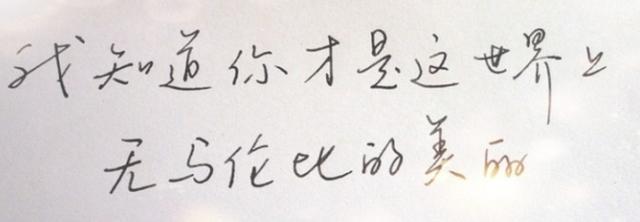 我知道你才是这世界上
无与伦比的美丽